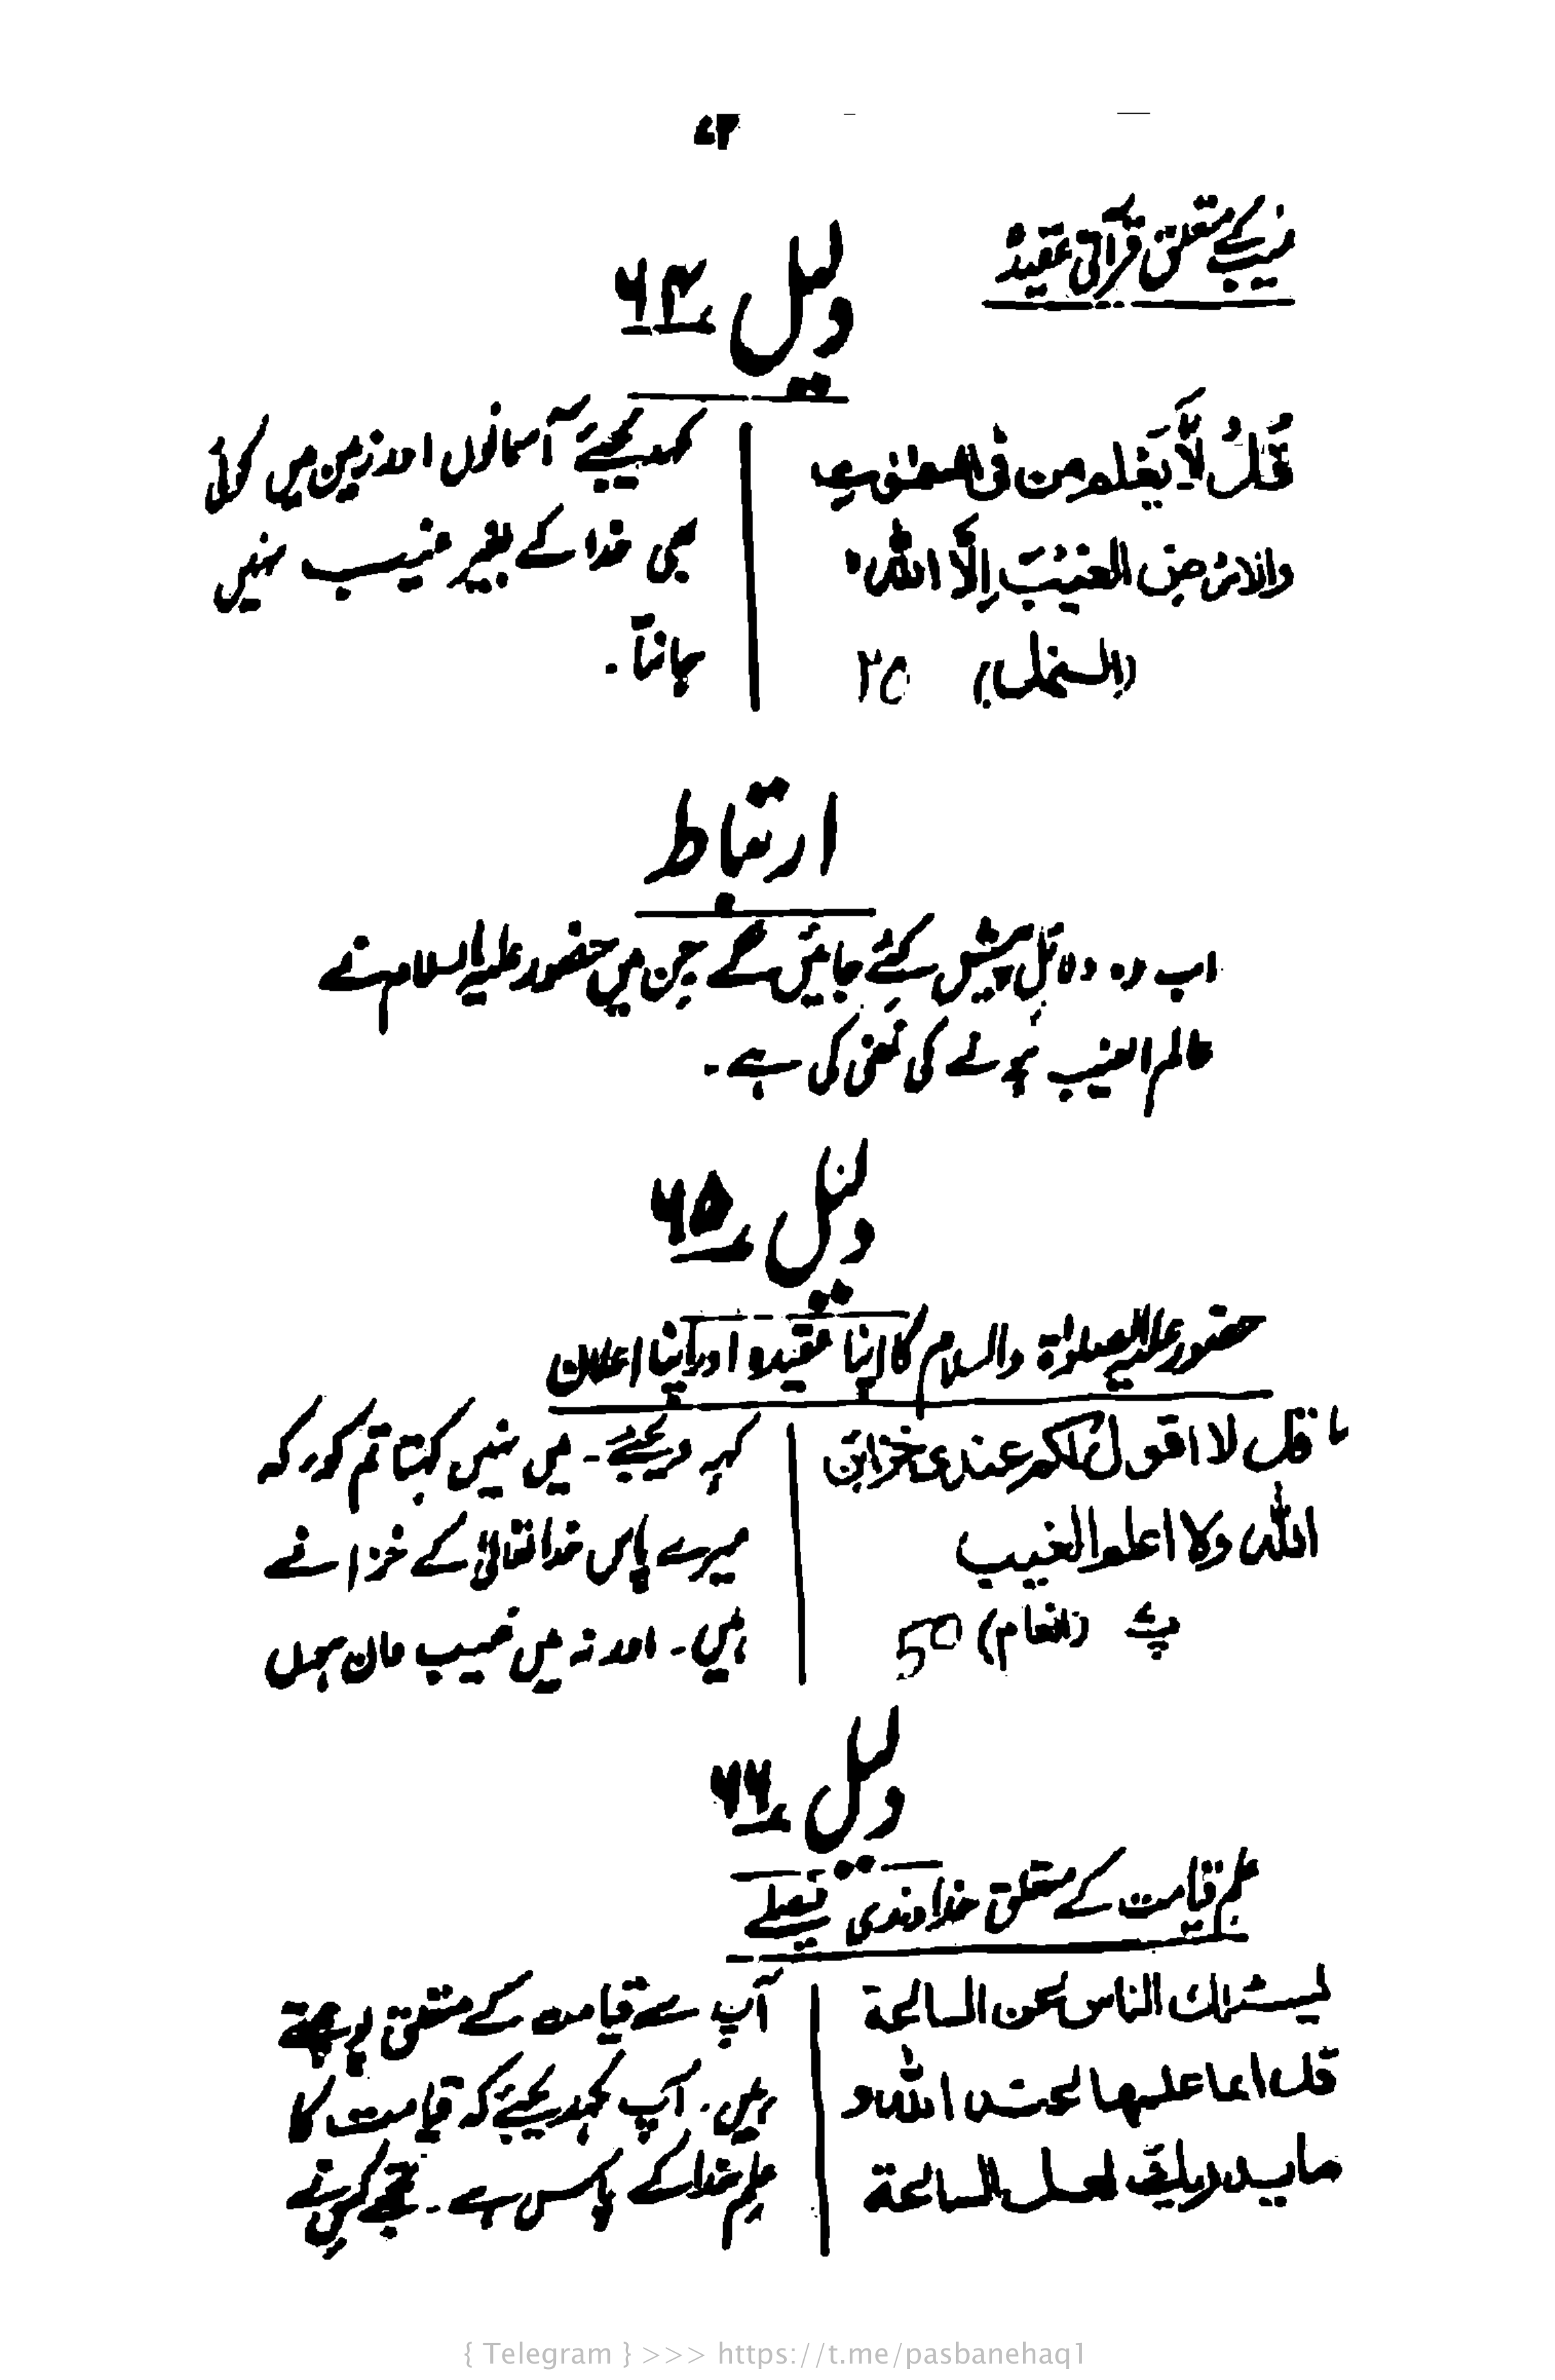 کے متعلق قرآنی عقیدہ
دلیل ۶۴
قُلْ لَّا یَعْلَمُ من فی السمٰوٰت
والارض الغیبَ اِلَّا اللہ
(النمل) ۲۵
کہدیجئے آسمانوں اور زمین میں کوئی
بھی خدا کے بغیر غیب نہیں
جانتا۔
ارتباط
اب وہ دلائل پیش کئے جائیں گے جن میں حضور علیہ السلام نے
عالم الغیب ہونے کی نفی کی ہے۔
دلیل ۶۵
حضور علیہ الصلوٰۃ والسلام کا اپنا عقیدہ اور اپنا اعلان
۱۔ قل لا اقول لکم عندی خزائن
اللہ ولا اعلم الغیب
پ۷ (انعام) 50
کہہ دیجئے۔ میں نہیں کہتا تم کو کہ
میرے پاس خدا تعالیٰ کے خزانے
ہیں۔ اور نہ میں غیب دان ہوں
دلیل ۶۶
علم قیامت کے متعلق خداوندی فیصلے
یسئلک الناس عن الساعة
قل انما علمها عند الله و
ما یدریک لعل الساعة
آپ سے قیامت کے متعلق پوچھتے
ہیں۔ آپ کہدیجئے کہ قیامت کا
علم خدا کے پاس ہے۔ تجھے کس نے
{ Telegram } >>> https://t.me/pasbanehaq1